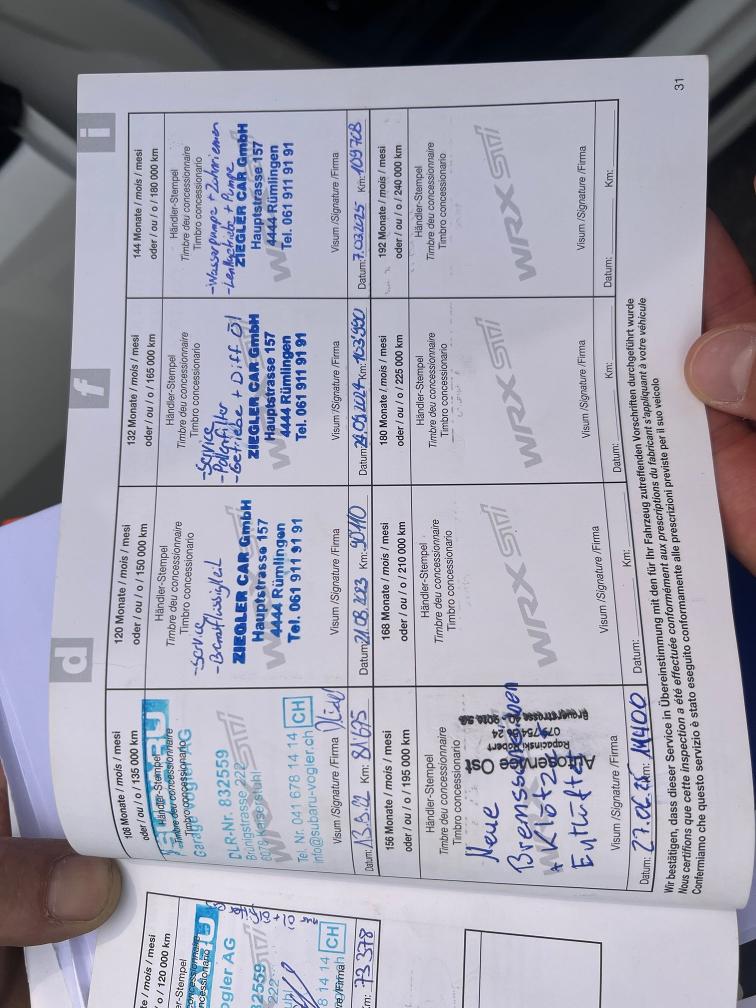 d
f
i
108 Monate / mois / mesi
oder / ou / o / 135 000 km
Händler-Stempel
Timbre deu concessionnaire
Timbro concessionario
SUBARU
Garage Vogler AG
DLR-Nr. 832559
Brünigstrasse 222
Tel. Nr. 041 678 14 14 CH
info@subaru-vogler.ch
Visum /Signature /Firma
Datum: 13.5.22 Km: 81695
120 Monate / mois / mesi
oder / ou / o / 150 000 km
Händler-Stempel
Timbre deu concessionnaire
Timbro concessionario
-Service
-Bremsflüssigkeit
ZIEGLER CAR GmbH
Hauptstrasse 157
4444 Rümlingen
Tel. 061 911 91 91
Visum /Signature /Firma
Datum: 21.08.2023 Km: 90110
132 Monate / mois / mesi
oder / ou / o / 165 000 km
Händler-Stempel
Timbre deu concessionnaire
Timbro concessionario
-Service
-Pollenfilter
-Getriebe + Diff Öl
ZIEGLER CAR GmbH
Hauptstrasse 157
4444 Rümlingen
Tel. 061 911 91 91
Visum /Signature /Firma
Datum: 24.09.2024 Km: 103990
144 Monate / mois / mesi
oder / ou / o / 180 000 km
Händler-Stempel
Timbre deu concessionnaire
Timbro concessionario
-Wasserpumpe + Zahnriemen
-Lenkgetriebe + Pumpe
ZIEGLER CAR GmbH
Hauptstrasse 157
4444 Rümlingen
Tel. 061 911 91 91
Visum /Signature /Firma
Datum: 7.03.2025 Km: 109708
156 Monate / mois / mesi
oder / ou / o / 195 000 km
Händler-Stempel
Timbre deu concessionnaire
Timbro concessionario
Autoservice Ost
Rapacinski Robert
Neue
+ Klötze
Entlüftet
Visum /Signature /Firma
Datum: 27.06.25 Km:
168 Monate / mois / mesi
oder / ou / o / 210 000 km
Händler-Stempel
Timbre deu concessionnaire
Timbro concessionario
WRX STI
Visum /Signature /Firma
Datum: Km:
180 Monate / mois / mesi
oder / ou / o / 225 000 km
Händler-Stempel
Timbre deu concessionnaire
Timbro concessionario
WRX STI
Visum /Signature /Firma
Datum: Km:
192 Monate / mois / mesi
oder / ou / o / 240 000 km
Händler-Stempel
Timbre deu concessionnaire
Timbro concessionario
WRX STI
Visum /Signature /Firma
Datum: Km:
Wir bestätigen, dass dieser Service in Übereinstimmung mit den für Ihr Fahrzeug zutreffenden Vorschriften durchgeführt wurde
Nous certifions que cette inspection a été effectuée conformément aux prescriptions du fabricant s'appliquant à votre véhicule
Confermiamo che questo servizio è stato eseguito conformamente alle prescrizioni previste per il suo veicolo
31
/ mois / mesi
/ o / 120 000 km
ogler AG
32559
8 14 14 CH
Km: 73 378